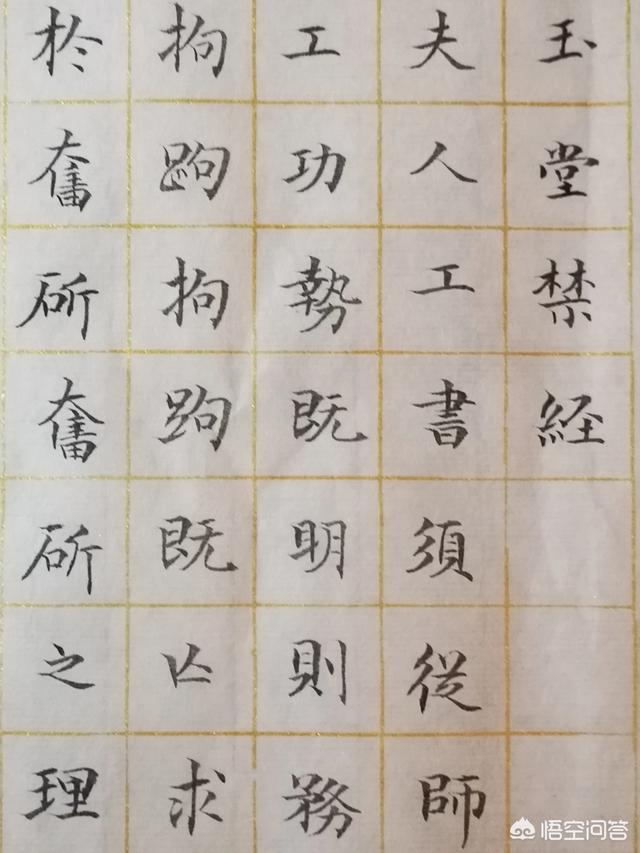 玉堂禁経
夫人工書須從師
工功勢既明則務
拘跔拘跔既亾求
扵奮斫奮斫之理
悟空问答